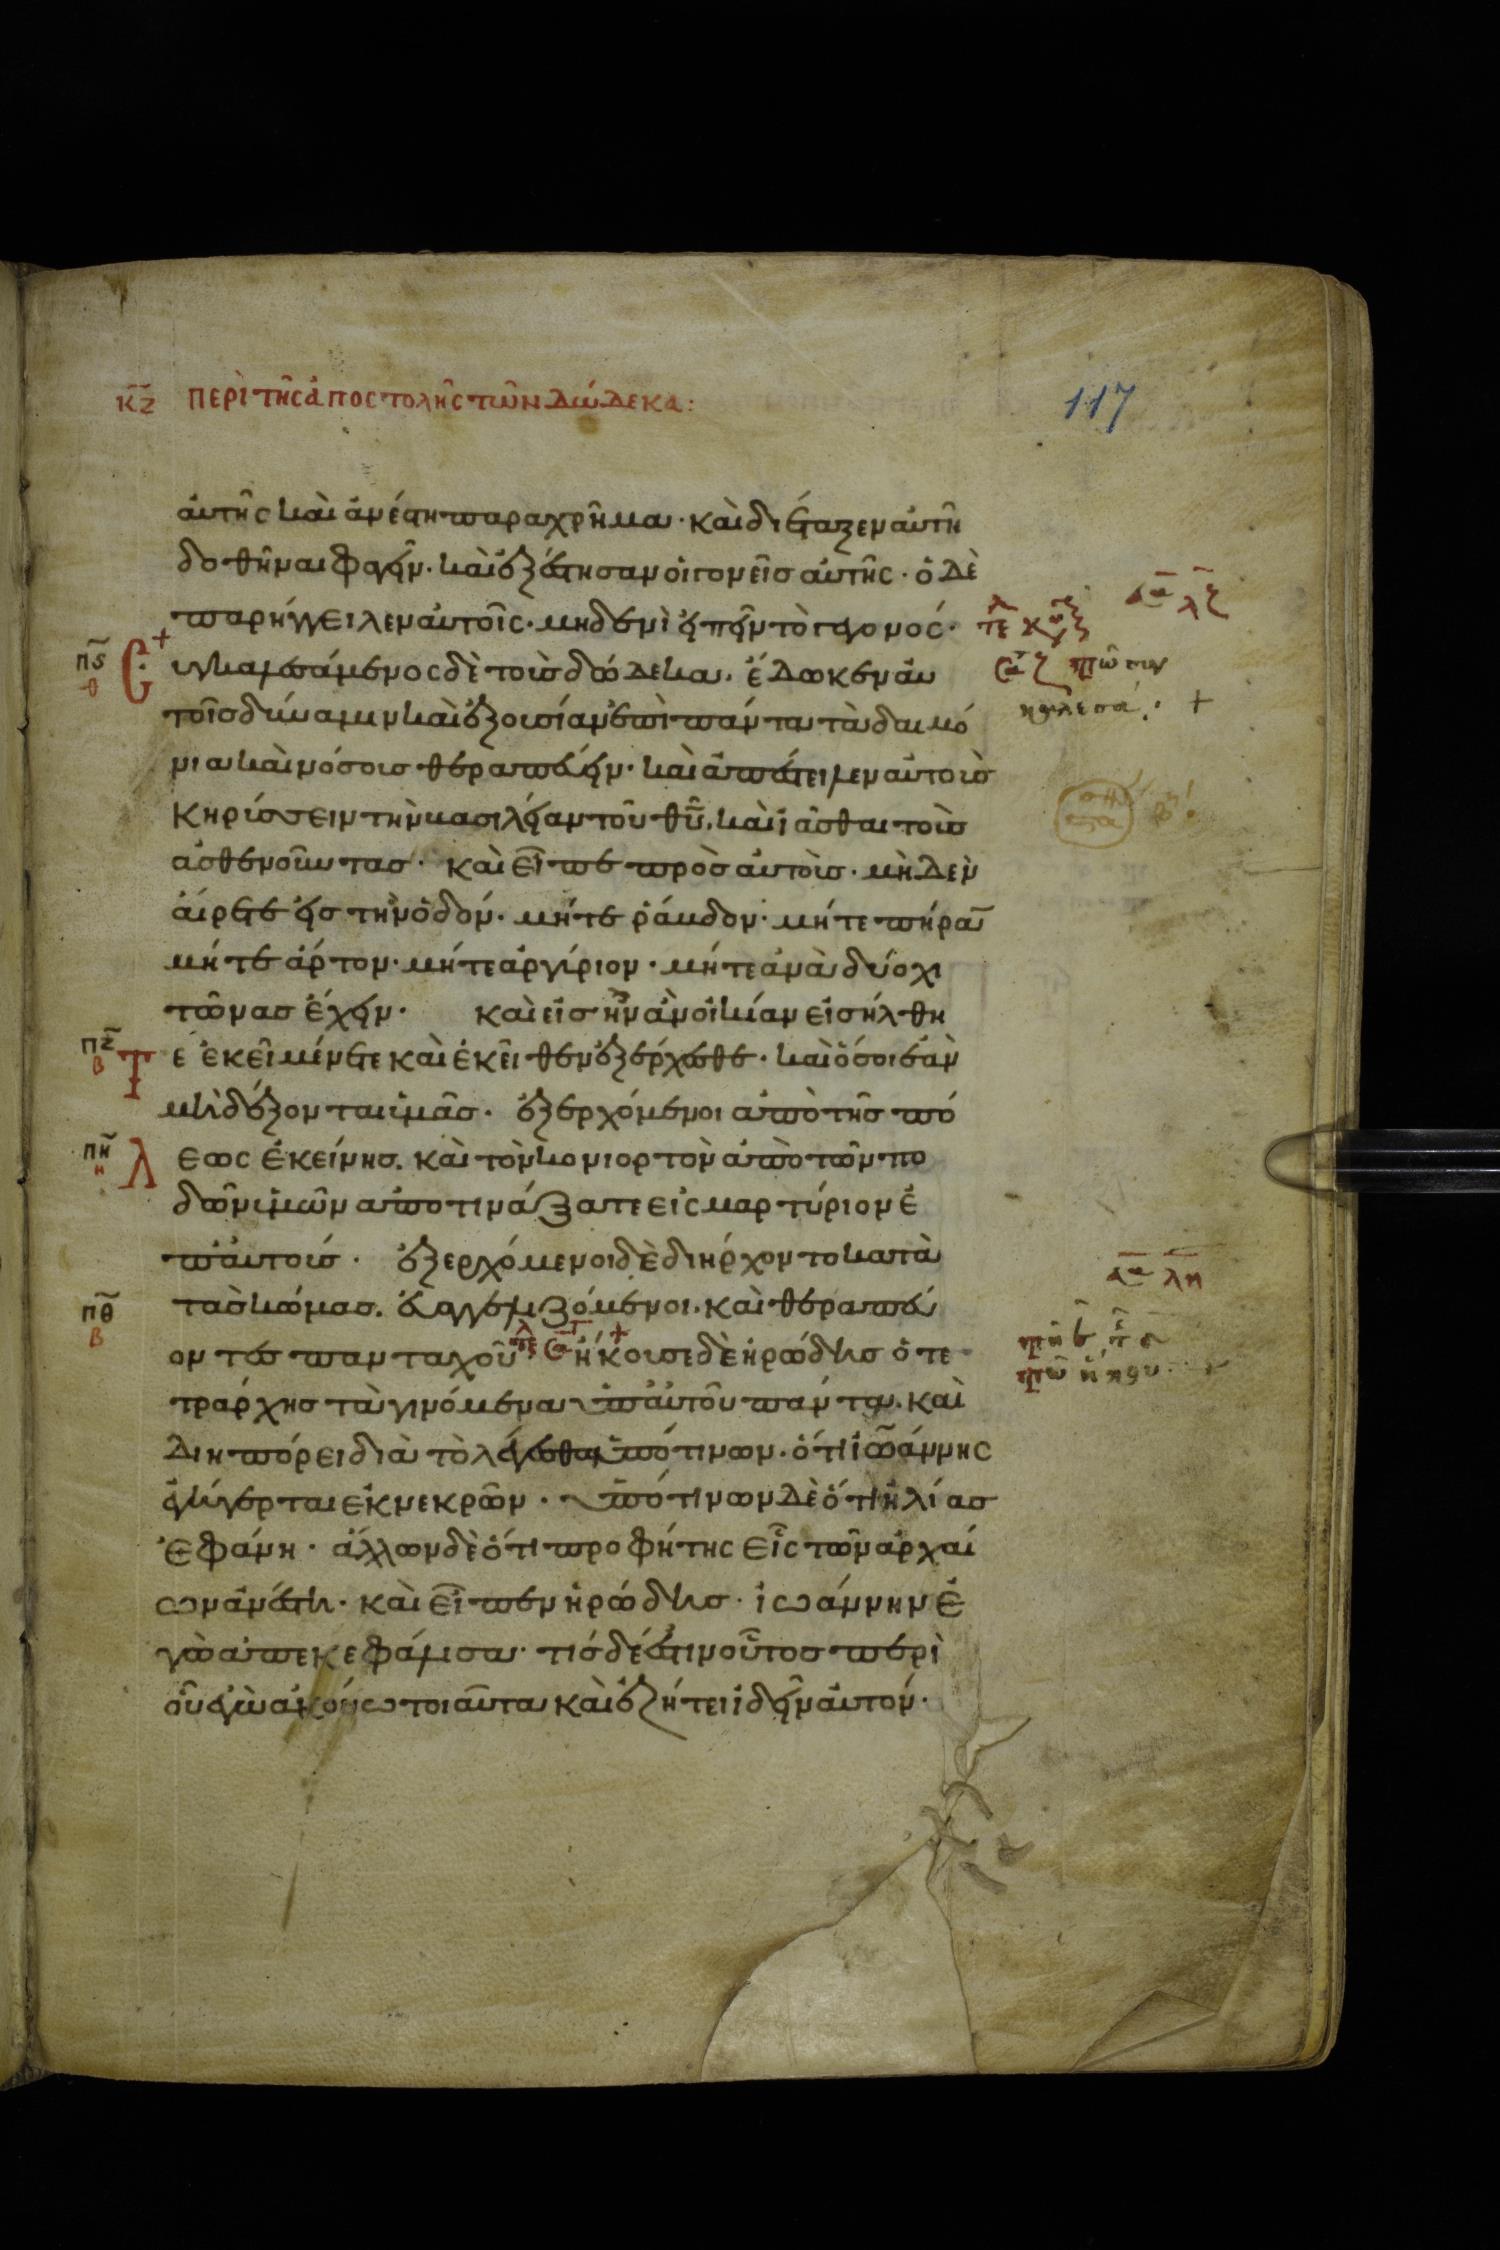 κζ περὶ τῆς ἀποστολῆς τῶν δώδεκα:
117
αὐτῆς καὶ ἀνέστη παραχρῆμα· καὶ διέταξεν αὐτῆ
δοθῆναι φαγεῖν· καὶ ἐξέστησαν οἱ γονεῖς αὐτῆς· ὁ δὲ
παρήγγειλεν αὐτοῖς· μηδενὶ εἰπεῖν τὸ γεγονός·
πς Συγκαλεσάμενος δὲ τοὺς δώδεκα· ἔδωκεν αὐ
τοῖς δύναμιν καὶ ἐξουσίαν ἐπὶ πάντα τὰ δαιμό
νια καὶ νόσους θεραπεύειν· καὶ ἀπέστειλεν αὐτοὺς
κηρύσσειν τὴν βασιλείαν τοῦ θῦ, καὶ ἰᾶσθαι τοὺς
ἀσθενοῦντας· καὶ εἶπε πρὸς αὐτοὺς· μὴδεν
αἴρετε εἰς τὴν ὁδόν· μήτε ῥάβδον· μήτε πήραν
μήτε ἄρτον· μήτε ἀργύριον· μήτε ἀνὰ δύο χι
τῶνας ἔχειν· καὶ εἰς ἣν ἂν οἰκίαν εἰσήλθη
πζ β τε ἐκεῖ μένετε καὶ ἐκεῖθεν ἐξέρχεσθε· καὶ ὅσοι ἐὰν
μὴ δέξονται ὑμᾶς· ἐξερχόμενοι ἀπὸ τῆς πό
πη η λεως ἐκείνης. καὶ τὸν κονιορτὸν ἀπὸ τῶν πο
δῶν ὑμῶν ἀποτινάξατε εἰς μαρτύριον ἐ
π' αὐτούς· ἐξερχόμενοι δὲ διήρχοντο κατὰ
πθ β τὰς κώμας. εὐαγγελιζόμενοι· καὶ θεραπεύ
οντες πανταχοῦ· ἤκουσε δὲ ἡρώδης ὁ τε
τράρχης τὰ γινόμενα ὑπ' αὐτοῦ πάντα· καὶ
διηπόρει διὰ τὸ λέγεσθαι ὑπό τινων· ὅτι ἰωάννης
ἐγήγερται ἐκ νεκρῶν· ὑπό τινων δὲ ὅτι ἡλίας
ἐφάνη· ἄλλων δὲ ὅτι προφήτης εἷς τῶν ἀρχαί
ων ἀνέστη· καὶ εἶπεν ἡρώδης· ἰωάννην ἐ
γὼ ἀπεκεφάλισα· τίς δέ ἐστιν οὗτος περὶ
οὗ ἐγὼ ἀκούω τοιαῦτα καὶ ἐζήτει ἰδεῖν αὐτόν·